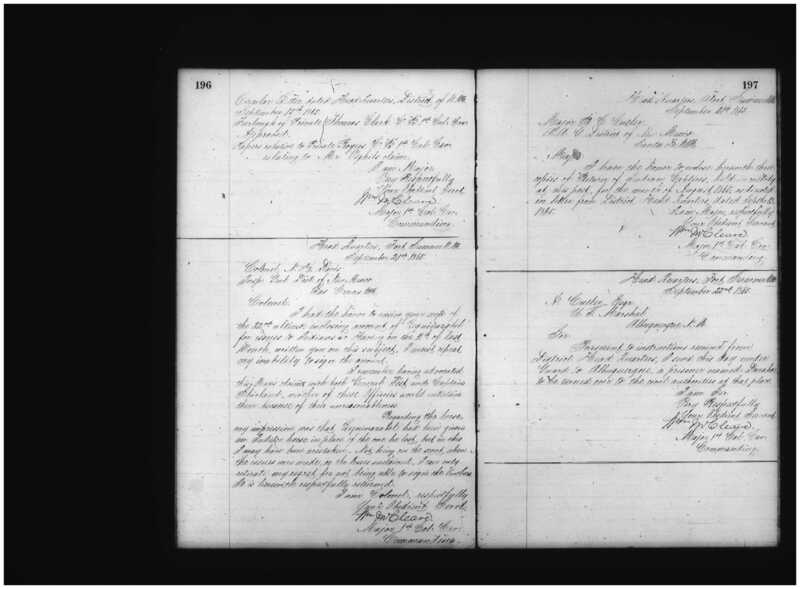 196
Circular Letter dated Head Quarters, District of N. M.
September 15th 1865.
Furlough of Private Thomas Clark Co. 1st Cal. Cav.
Approved.
Papers relative to Private Co. 1st Cal. Cav.
relating to Mr claim.
I am Major
Very Respectfully
Your Obedient Servt
Wm McCleave
Major 1st Cal. Cav.
Commanding.
Head Quarters, Fort Sumner N. M.
September 21st 1865.
Colonel N. H. Davis
Insp. Genl Dist. of New Mexico
Las Cruces N.M.
Colonel:
I had the honor to receive your note of
the 22nd ultimo, inclosing account of
for issues to Indians &c. Having on the of last
Month, written you on this subject, I must repeat
my inability to sign the account.
I remember having advocated
this Mans claims with both General and Captain
neither of these Officers would entertain
them because of their unreasonableness.
Regarding the horse,
my impression was that had been given
an horse in place of the one he lost, but in this
I may have been mistaken. Not being on the spot when
the issues were made, or the losses sustained, I can only
reiterate my regret for not being able to sign the vouchers
He is herewith respectfully returned.
I am Colonel, respectfully
Your Obedient Servt.
Wm McCleave
Major 1st Cal. Cav.
Commanding.
197
Head Quarters, Fort Sumner N.M.
September 21st 1865.
Major B. C. Cutler
A. A. G. District of New Mexico
Santa Fe N.M.
Major
I have the honor to inclose herewith three
copies of Return of Indian Captives, held in
at this post, for the month of August 1865, as directed
in letter from District Head Quarters, dated Sept.
1865.
I am, Major, respectfully
Your Obedient Servant
Wm McCleave
Major 1st Cal. Cav.
Commanding
Head Quarters, Fort Sumner N.M.
September 22nd 1865.
A. Cutler Esqr
U. S. Marshal
Albuquerque N. M.
Sir
Pursuant to instructions received from
District Head Quarters, I send this day under
Guard to Albuquerque, a prisoner named
to be turned over to the civil authorities at that place.
I am Sir
Very Respectfully
Your Obedient Servant
Wm McCleave
Major 1st Cal. Cav.
Commanding.